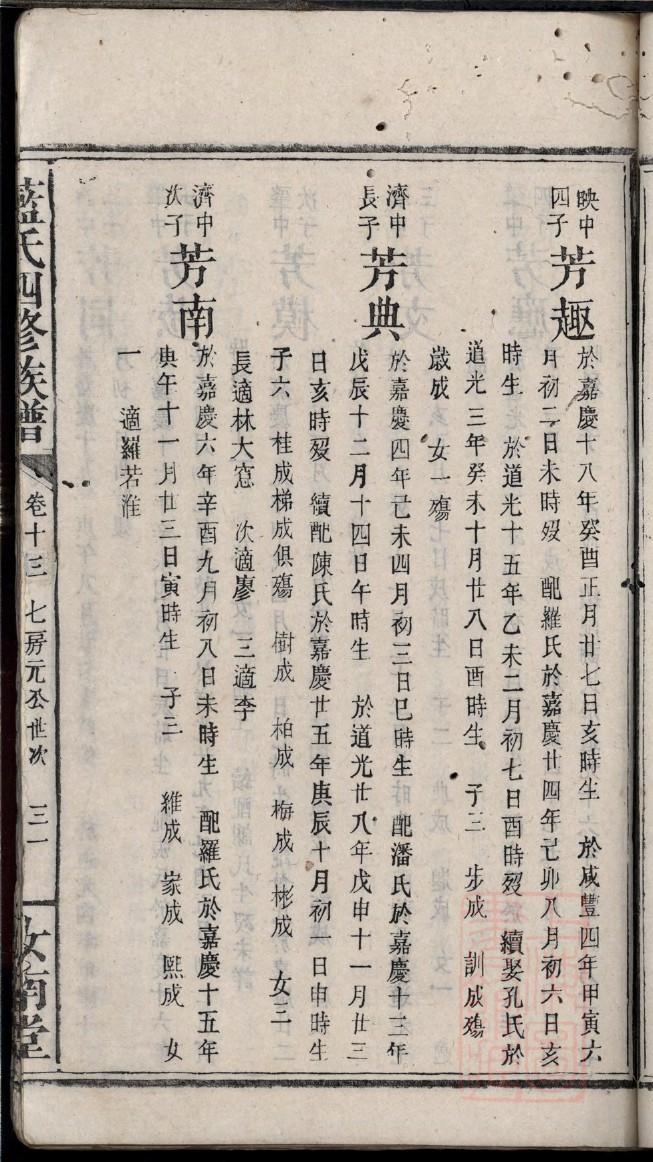 映中
四子
芳趣
於嘉慶十八年癸酉正月廿七日亥時生 於咸豐四年甲寅六
月初二日未時歿 配羅氏於嘉慶廿四年己卯八月初六日亥
時生 於道光十五年乙未二月初七日酉時歿 續娶孔氏於
道光三年癸未十月廿八日酉時生 子三 步成 訓成殤
歲成 女一殤
濟中
長子
芳典
於嘉慶四年己未四月初三日巳時生 配潘氏於嘉慶十三年
戊辰十二月十四日午時生 於道光廿八年戊申十一月廿三
日亥時歿 續配陳氏於嘉慶廿五年庚辰十月初 日申時生
子六 桂成梯成俱殤 樹成 柏成 梅成 彬成 女三
長適林大窓 次適廖 三適李
濟中
次子
芳南
於嘉慶六年辛酉九月初八日未時生 配羅氏於嘉慶十五年
庚午十一月廿三日寅時生 子三 維成 家成 熙成 女
一 適羅若淮
藍氏四修族譜
卷十三 七房元公世次 三一
汝南堂